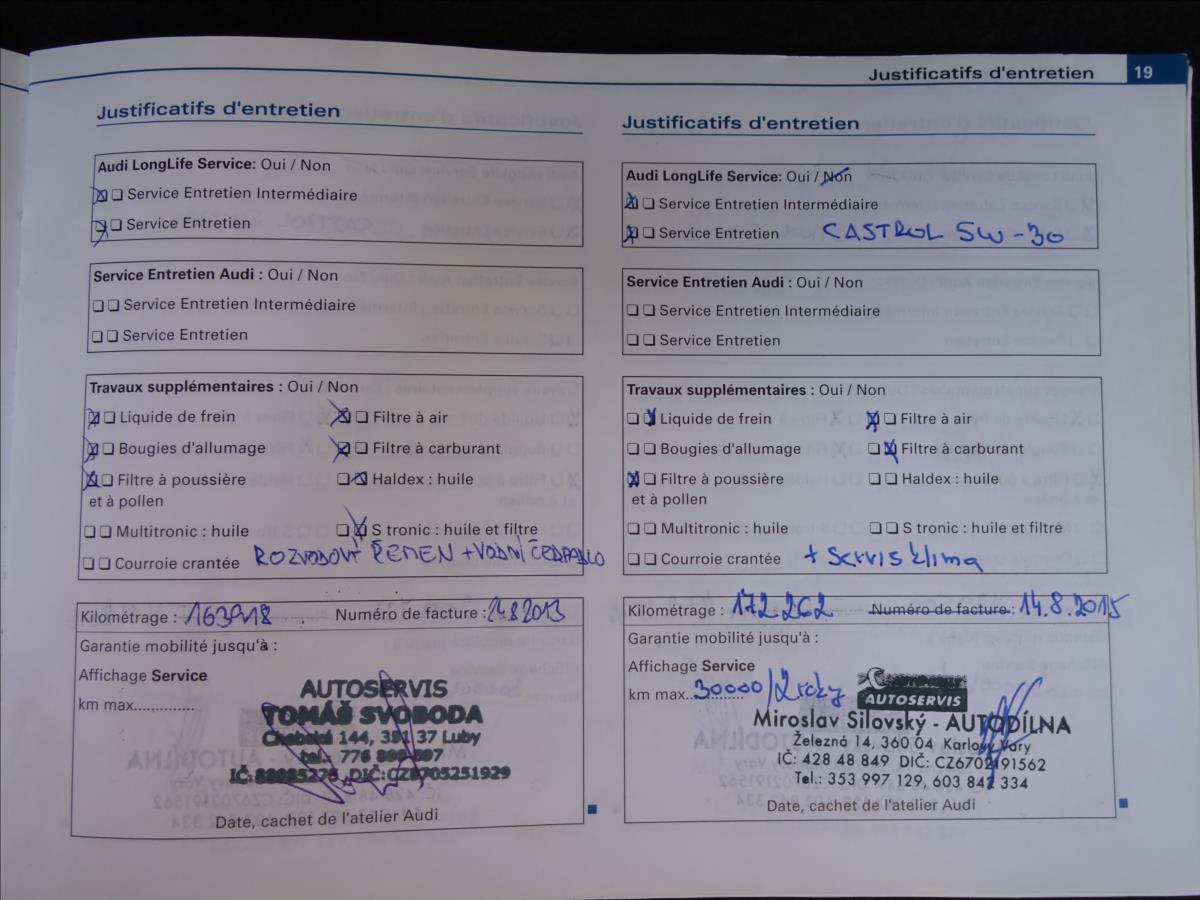 Justificatifs d'entretien 19
Justificatifs d'entretien
Audi LongLife Service: Oui / Non
Service Entretien Intermédiaire
Service Entretien
Service Entretien Audi : Oui / Non
Service Entretien Intermédiaire
Service Entretien
Travaux supplémentaires : Oui / Non
Liquide de frein Filtre à air
Bougies d'allumage Filtre à carburant
Filtre à poussière Haldex : huile
et à pollen
Multitronic : huile S tronic : huile et filtre
Courroie crantée ROZVODOVÝ ŘEMEN + VODNÍ ČERPADLO
Kilométrage : Numéro de facture :
Garantie mobilité jusqu'à :
Affichage Service
km max..............
AUTOSERVIS
TOMÁŠ SVOBODA
Chebská 144, 351 37 Luby
tel.: 776
IČ: DIČ:CZ8705251929
Date, cachet de l'atelier Audi
Justificatifs d'entretien
Audi LongLife Service: Oui / Non
Service Entretien Intermédiaire
Service Entretien CASTROL 5W-30
Service Entretien Audi : Oui / Non
Service Entretien Intermédiaire
Service Entretien
Travaux supplémentaires : Oui / Non
Liquide de frein Filtre à air
Bougies d'allumage Filtre à carburant
Filtre à poussière Haldex : huile
et à pollen
Multitronic : huile S tronic : huile et filtre
Courroie crantée + Servis klima
Kilométrage : 172.262 Numéro de facture : 14.8.2015
Garantie mobilité jusqu'à :
Affichage Service
km max... 30000/2 roky
AUTOSERVIS
Miroslav Silovský - AUTODÍLNA
Železná 14, 360 04 Karlovy Vary
IČ: 428 48 849 DIČ: CZ6702191562
Tel.: 353 997 129, 603 842 334
Date, cachet de l'atelier Audi